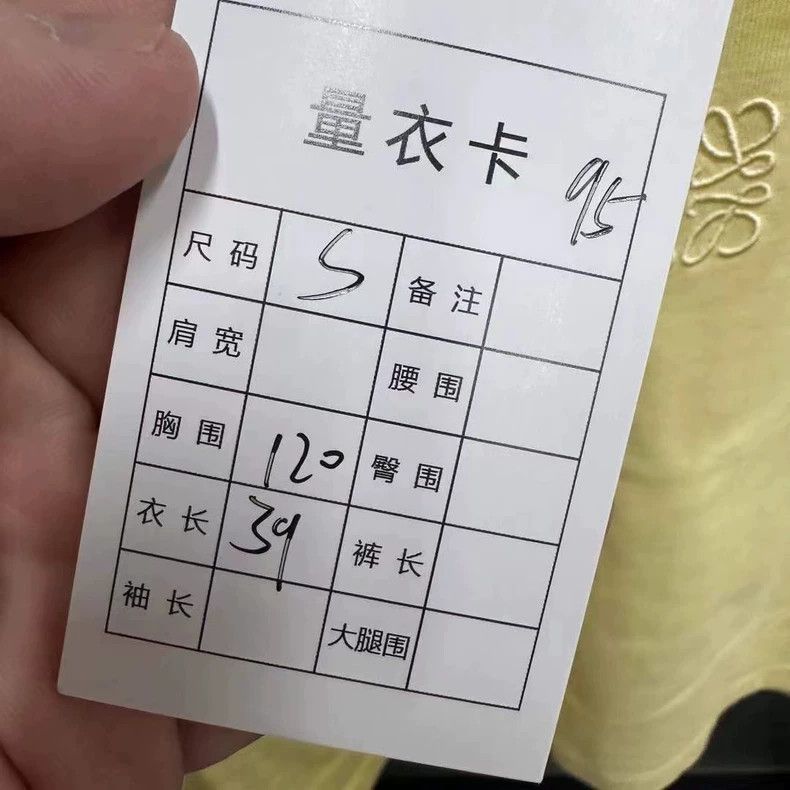 量衣卡
95
尺码 S 备注
肩宽 腰围
胸围 120 臀围
衣长 39 裤长
袖长 大腿围